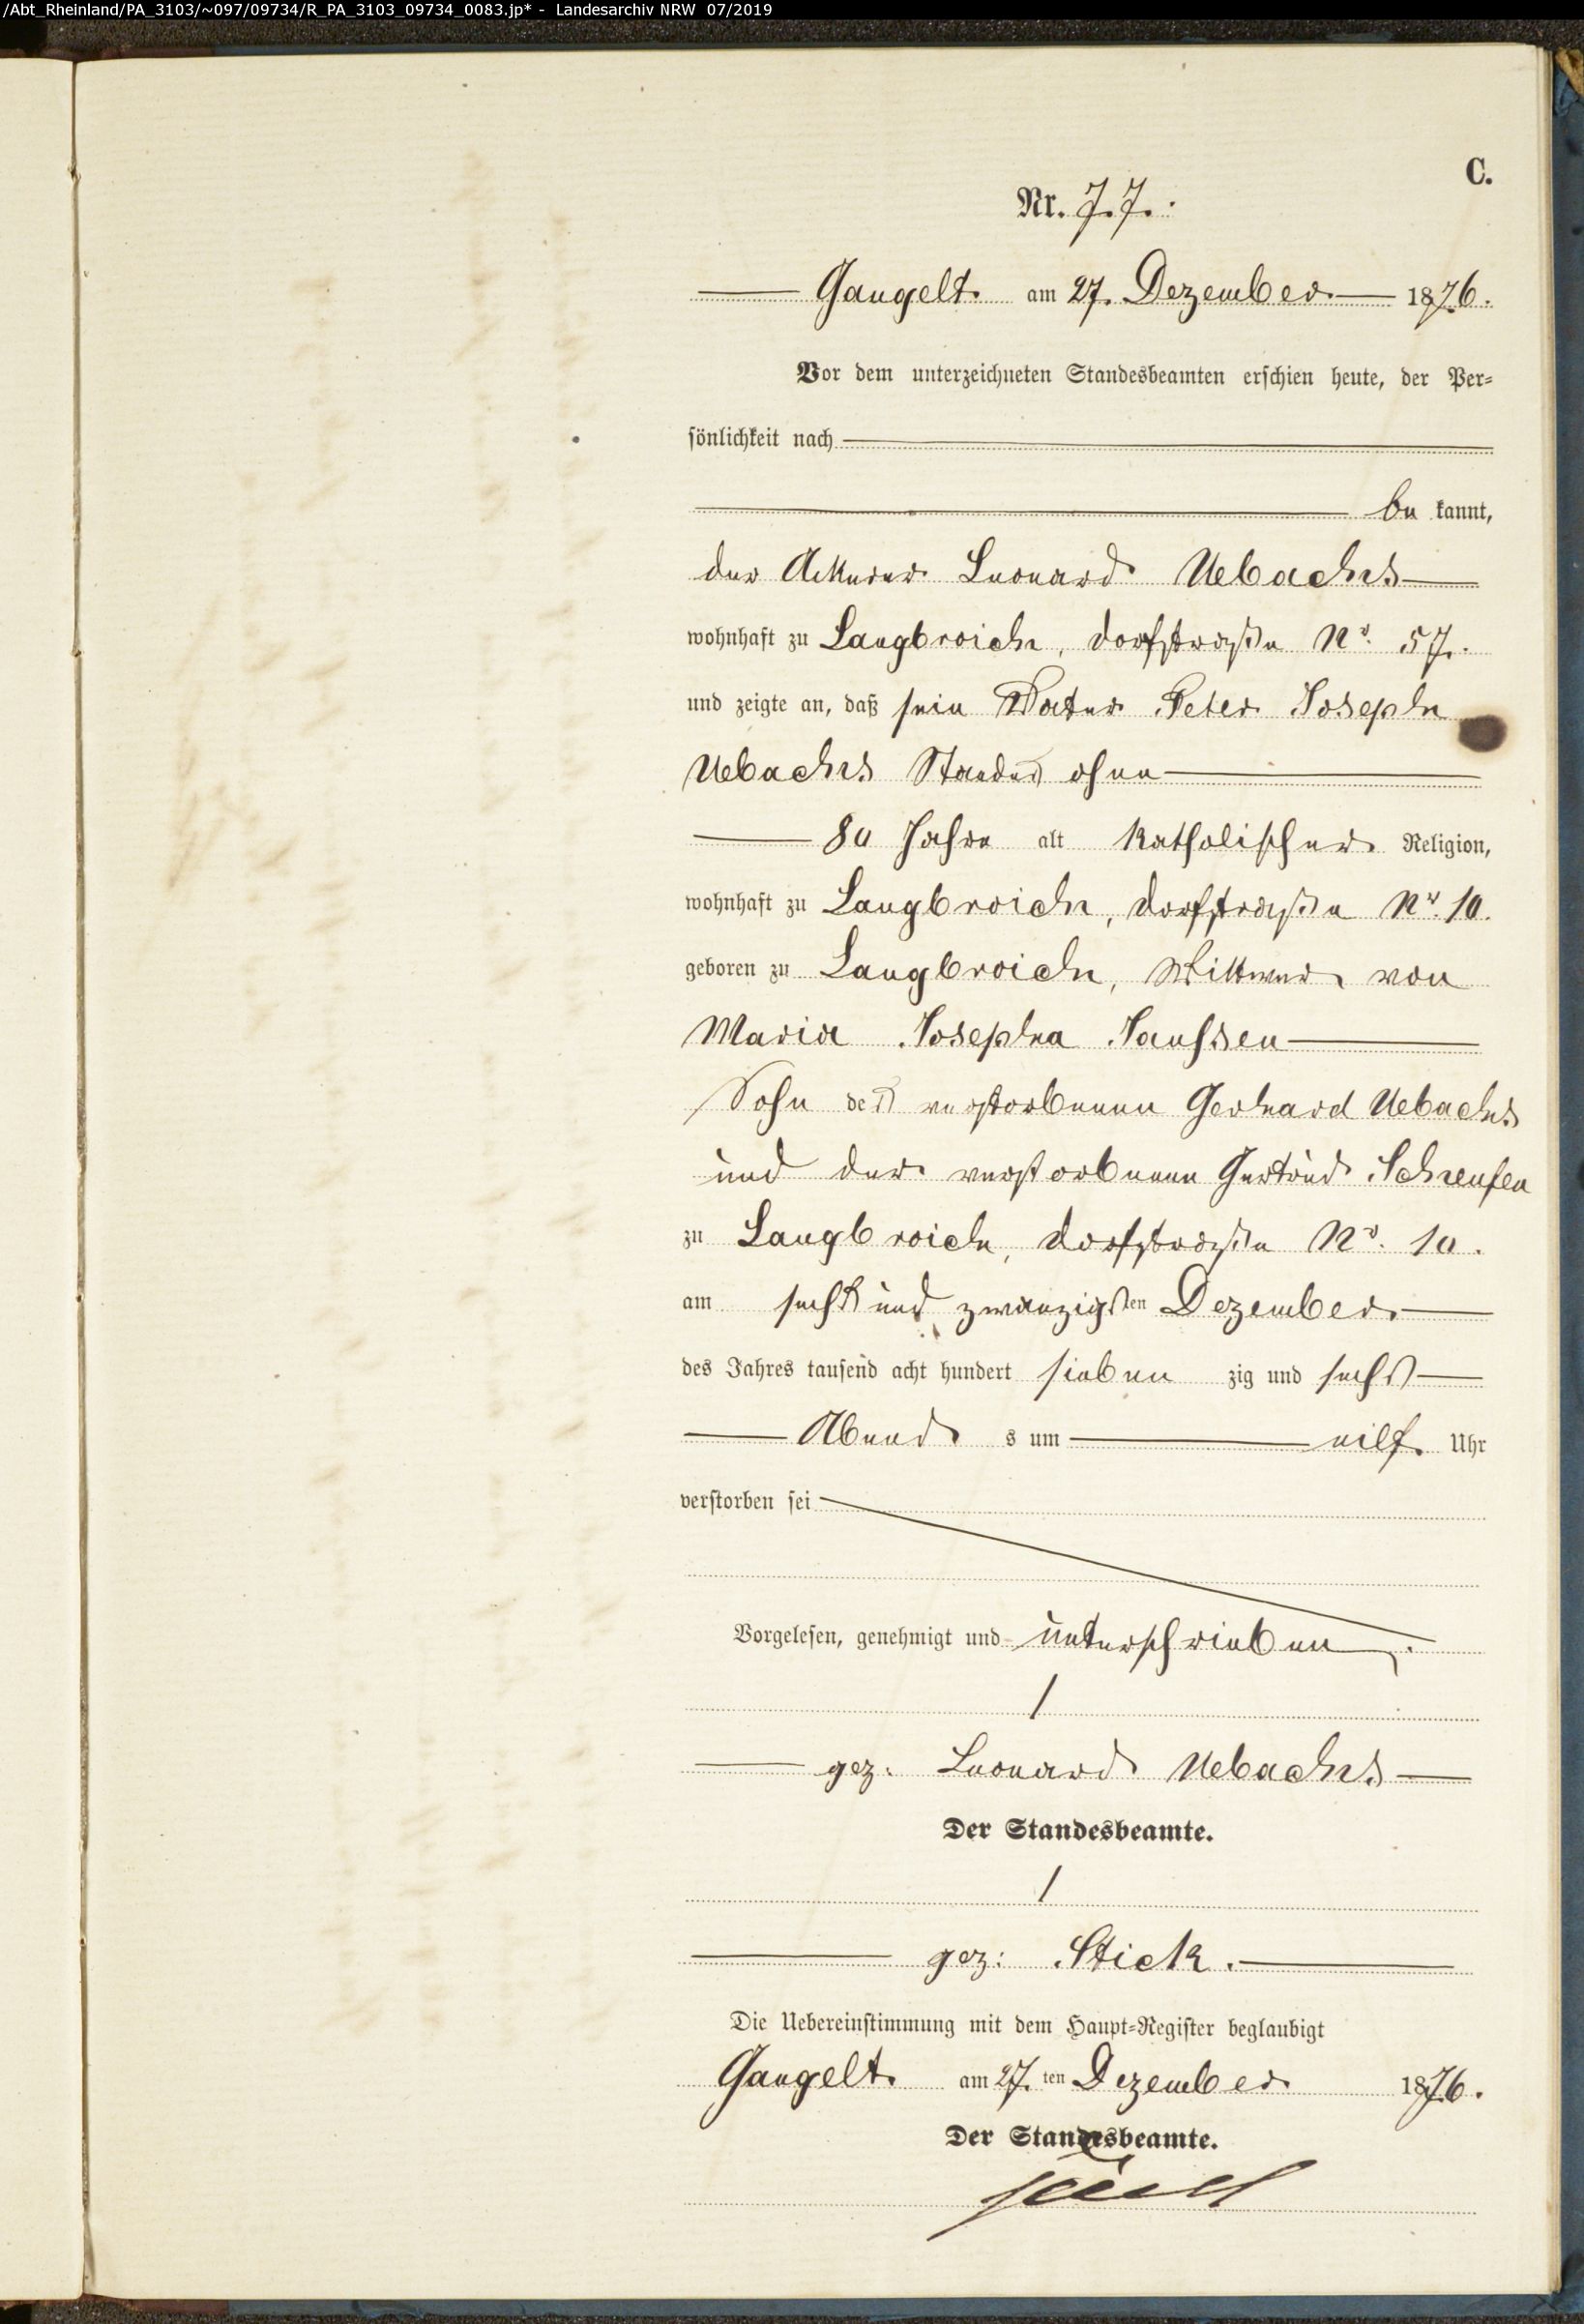 /Abt_Rheinland/PA_3103/~097/09734/R_PA_3103_09734_0083.jp* - Landesarchiv NRW 07/2019
C.
Nr. 77.
Gangelt am 27. Dezember 1876.
Vor dem unterzeichneten Standesbeamten erschien heute, der Per-
sönlichkeit nach
be kannt,
der Ackerer Leonard Uebachs
wohnhaft zu Langbroich, Dorfstraße No. 57.
und zeigte an, daß sein Vater Peter Joseph
Uebachs Standes ohne
80 Jahre alt katholischer Religion,
wohnhaft zu Langbroich, Dorfstraße No. 10.
geboren zu Langbroich, Wittwer von
Maria Josepha Janssen
Sohn des verstorbenen Gerhard Uebachs
und der verstorbenen Gertrud
zu Langbroich, Dorfstraße No. 10.
am sechs und zwanzigsten Dezember
des Jahres tausend acht hundert sieben zig und sechs
Abend s um eilf Uhr
verstorben sei
Vorgelesen, genehmigt und unterschrieben.
gez. Leonard Uebachs
Der Standesbeamte.
gez: Stick.
Die Uebereinstimmung mit dem Haupt-Register beglaubigt
Gangelt am 27. ten Dezember 1876.
Der Standesbeamte.